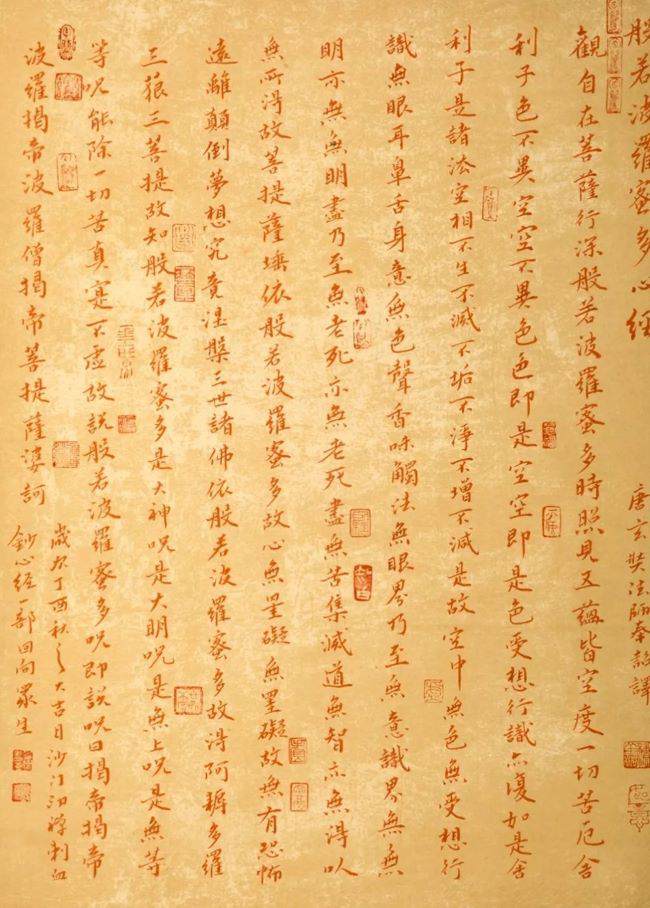 般若波羅蜜多心經
唐玄奘法師奉詔譯
觀自在菩薩行深般若波羅蜜多時照見五蘊皆空度一切苦厄舍
利子色不異空空不異色色即是空空即是色受想行識亦復如是舍
利子是諸法空相不生不滅不垢不淨不增不減是故空中無色無受想行
識無眼耳鼻舌身意無色聲香味觸法無眼界乃至無意識界無無
明亦無無明盡乃至無老死亦無老死盡無苦集滅道無智亦無得以
無所得故菩提薩埵依般若波羅蜜多故心無罣礙無罣礙故無有恐怖
遠離顛倒夢想究竟涅槃三世諸佛依般若波羅蜜多故得阿耨多羅
三藐三菩提故知般若波羅蜜多是大神呪是大明呪是無上呪是無等
等呪能除一切苦真實不虛故說般若波羅蜜多呪即說呪曰揭帝揭帝
波羅揭帝波羅僧揭帝菩提薩婆訶
歲次丁酉秋之大吉日沙门刺血
鈔心經一部回向眾生